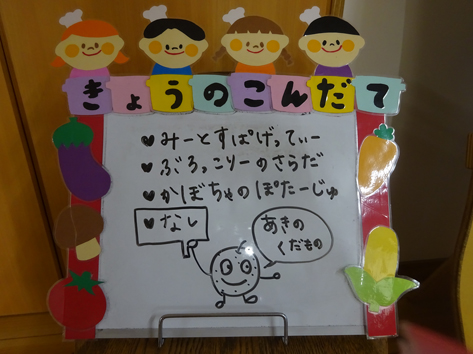 きょうのこんだて
♥ みーとすぱげってぃー
♥ ぶろっこりーのさらだ
♥ かぼちゃのぽたーじゅ
♥ なし
あきの
くだもの